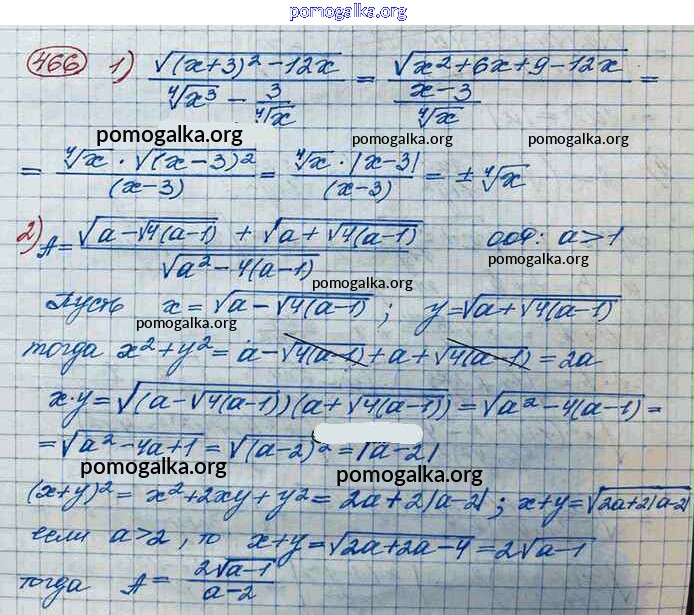 pomogalka.org
466 1) √((x+3)² - 12x) / (⁴√x³ - 3/⁴√x) = √(x²+6x+9-12x) / ((x-3)/⁴√x) =
pomogalka.org pomogalka.org pomogalka.org
= ⁴√x · √((x-3)²) / (x-3) = ⁴√x · |x-3| / (x-3) = ± ⁴√x
2) A = (√(a-√4(a-1)) + √(a+√4(a-1))) / √(a²-4(a-1)) ООФ: a>1
pomogalka.org
pomogalka.org
Пусть x = √(a-√4(a-1)); y = √(a+√4(a-1))
pomogalka.org
тогда x²+y² = a-√4(a-1) + a+√4(a-1) = 2a
x·y = √((a-√4(a-1))(a+√4(a-1))) = √(a²-4(a-1)) =
= √(a²-4a+1) = √((a-2)²) = |a-2|
pomogalka.org pomogalka.org
(x+y)² = x²+2xy+y² = 2a+2|a-2|; x+y = √(2a+2|a-2|)
если a>2, то x+y = √(2a+2a-4) = 2√(a-1)
тогда A = 2√(a-1) / (a-2)